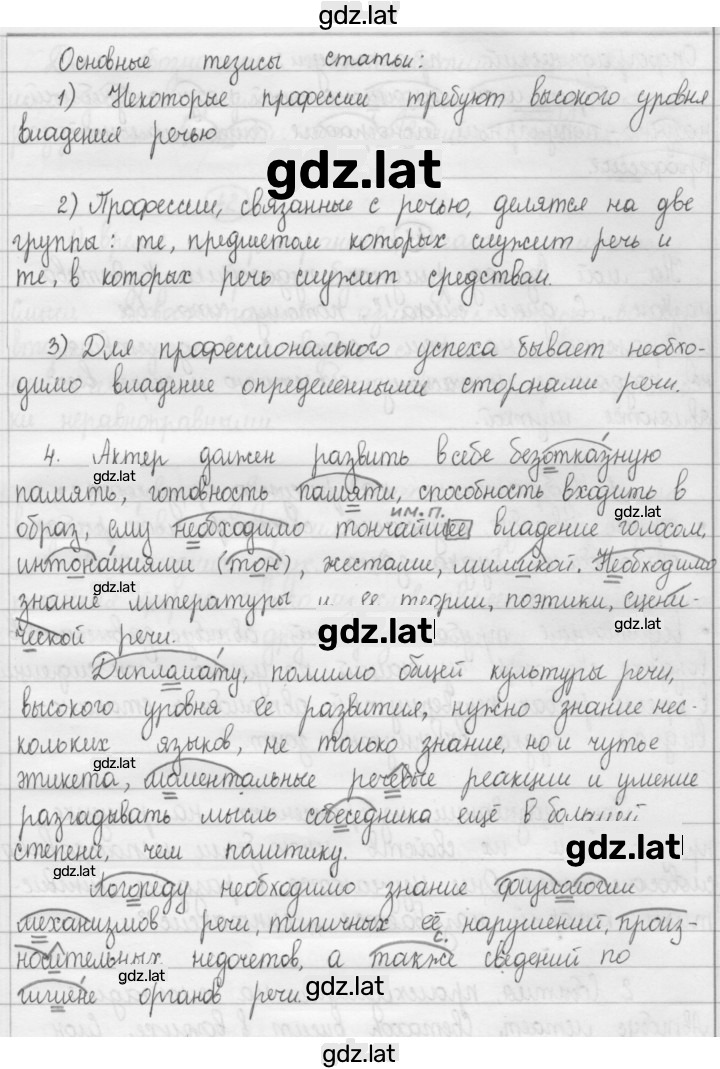 gdz.lat
Основные тезисы статьи:
1) Некоторые профессии требуют высокого уровня
владения речью
gdz.lat
2) Профессии, связанные с речью, делятся на две
группы: те, предметом которых служит речь и
те, в которых речь служит средством.
gdz.lat
3) Для профессионального успеха бывает необхо-
димо владение определенными сторонами речи.
4. Актер должен развить в себе безотказную
gdz.lat
память, готовность памяти, способность входить в
gdz.lat
им.п.
образ, ему необходимо тончайшее владение голосом,
интонациями (тон), жестами, мимикой. Необходимо
gdz.lat
знание литературы и её теории, поэтики, сцени-
gdz.lat
ческой речи.
gdz.lat
Дипломату, помимо общей культуры речи,
высокого уровня её развития, нужно знание нес-
кольких языков, не только знание, но и чутье
gdz.lat
этикета, моментальные речевые реакции и умение
разгадывать мысль собеседника ещё в большей
степени, чем политику.
gdz.lat
gdz.lat
Логопеду необходимо знание физиологии
механизмов речи, типичных её нарушений, произ-
с.
носительных недочетов, а также сведений по
gdz.lat
гигиене органов речи.
gdz.lat
gdz.lat